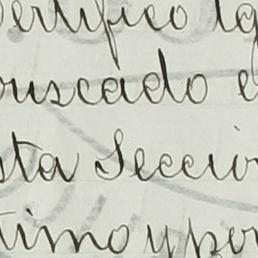 ertifico q
buscado e
sta Secció
timo y por